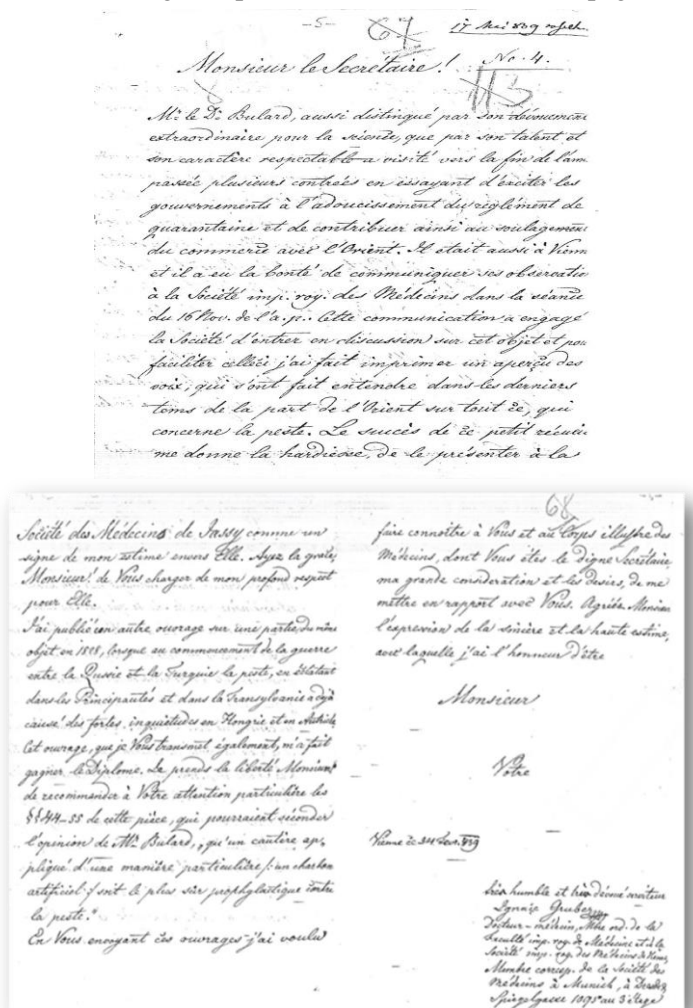 -5-
67
17 Mai 839
No. 4.
Monsieur le Secrétaire!
113
Mr. le Dr. Bulard, aussi distingué par son dévouement
extraordinaire pour la science, que par son talent et
son caractère respectable a visité vers la fin de l'ann
passée plusieurs contrées en essayant d'exciter les
gouvernements à l'adoucissement du règlement de
quarantaine et de contribuer ainsi au soulagement
du commerce avec l'Orient. Il était aussi à Vienn
et il a eu la bonté de communiquer ses observatio
à la Société imp. roy. des Médecins dans la séance
du 16 Nov. de l'a. p. Cette communication a engagé
la Société d'entrer en discussion sur cet objet et pou
faciliter celleci j'ai fait imprimer un aperçu des
voix, qui s'ont fait entendre dans les derniers
tems de la part de l'Orient sur tout ce, qui
concerne la peste. Le succès de ce petit récueil
me donne la hardiesse, de le présenter à la
Société des Médecins de Jassy comme un
signe de mon estime envers Elle. Ayez la grace,
Monsieur! de Vous charger de mon profond respect
pour Elle.
J'ai publié un autre ouvrage sur une partie du même
objet en 1828, lorsque au commencement de la guerre
entre la Russie et la Turquie la peste, en éclatant
dans les Principautés et dans la Transylvanie a dejà
causé des fortes inquiétudes en Hongrie et en Autriche
Cet ouvrage, que je Vous transmet également, m'a fait
gagner le Diplome. Je prends la liberté Monsieur!
de recommander à Votre attention particulière les
§§44-55 de cette pièce, qui pourraient séconder
l'opinion de Mr. Bulard, „qu'un cautère ap,
pliqué d'une manière particulière /: un charbon
artificiel :/ soit le plus sûr prophylactique contre
la peste."
En Vous envoyant ces ouvrages j'ai voulu
68
faire connoître à Vous et au Corps illustre des
Médecins, dont Vous êtes le digne Secrétaire,
ma grande consideration et les desirs, de me
mettre en rapport avec Vous. Agréez Monsieur
l'expression de la sincère et la haute estime,
avec laquelle j'ai l'honneur d'être
Monsieur
Votre
Vienne ce Fevr. 839
très humble et très dévoué serviteur
Ignace Gruber
Docteur-médecin, Mbre ord. de la
Faculté imp. roy. de Médecine et de la
Société imp. roy. des Médecins de Vienne,
Membre corresp. de la Société des
Médecins à Munich, à Dresde,
Spiegelgasse 1095 au 3 étage